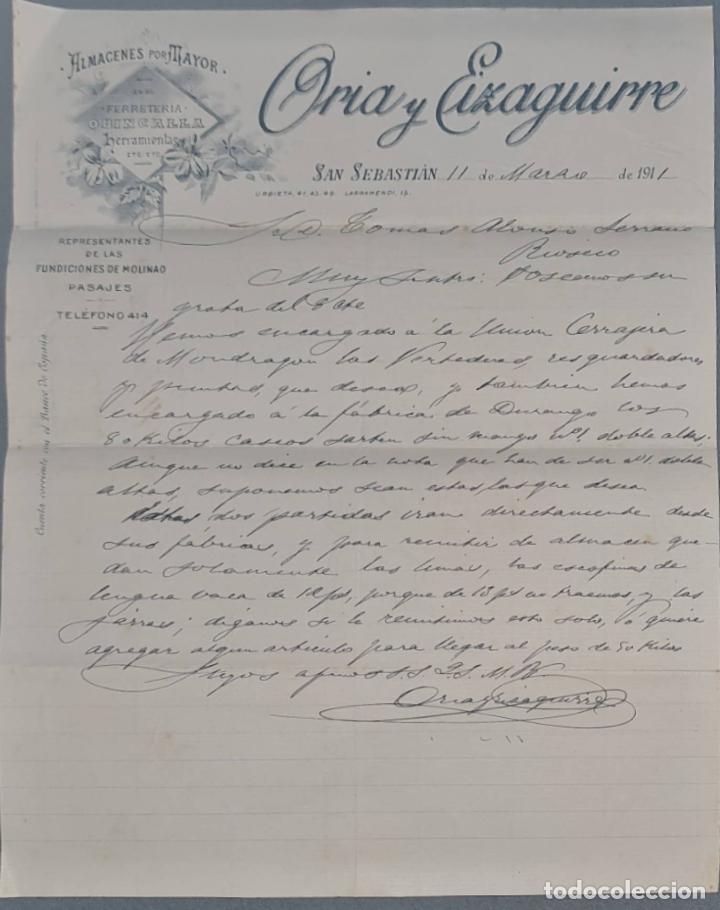 ALMACENES POR MAYOR
DE
FERRETERIA
QUINCALLA
herramientas
ETC. ETC.
Oria y Eizaguirre
SAN SEBASTIÁN 11 de Marzo de 1911
URBIETA, 41, 43, 45. LARRAMENDI, 15.
REPRESENTANTES
DE LAS
FUNDICIONES DE MOLINAO
PASAJES
TELÉFONO 414
Cuenta corriente con el Banco de España
Sr. D. Tomas Alonso Serrano
Rioseco
Muy Sr. ntro: Poseemos su
grata del 8 cte
Hemos encargado á la Union Cerrajera
de Mondragon las Vertederas, resguardadores
y puntas, que desea, y tambien hemos
encargado á la fábrica de Durango los
80 Kilos cascos sarten sin mango nº 1 doble altas.
Aunque no dice en la nota que han de ser nº 1 doble
altas, suponemos sean estas las que desea
dos partidas iran directamente desde
sus fábricas, y para remitir de almacen que-
dan solamente las limas, las escofinas de
lengua vaca de 12 ps, porque de 13 ps no traemos, y las
jarras; diganos si le remitimos esto solo, ó quiere
agregar algun artículo para llegar al peso de 50 Kilos
Suyos afmos S.S. Q.S.M.B.
Oria y Eizaguirre
todocoleccion
todocoleccion.net